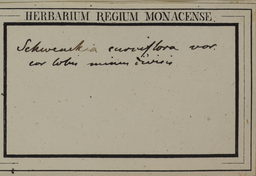 HERBARIUM REGIUM MONACENSE.
Schwenckia curviflora var.
cor lobis minus divisis